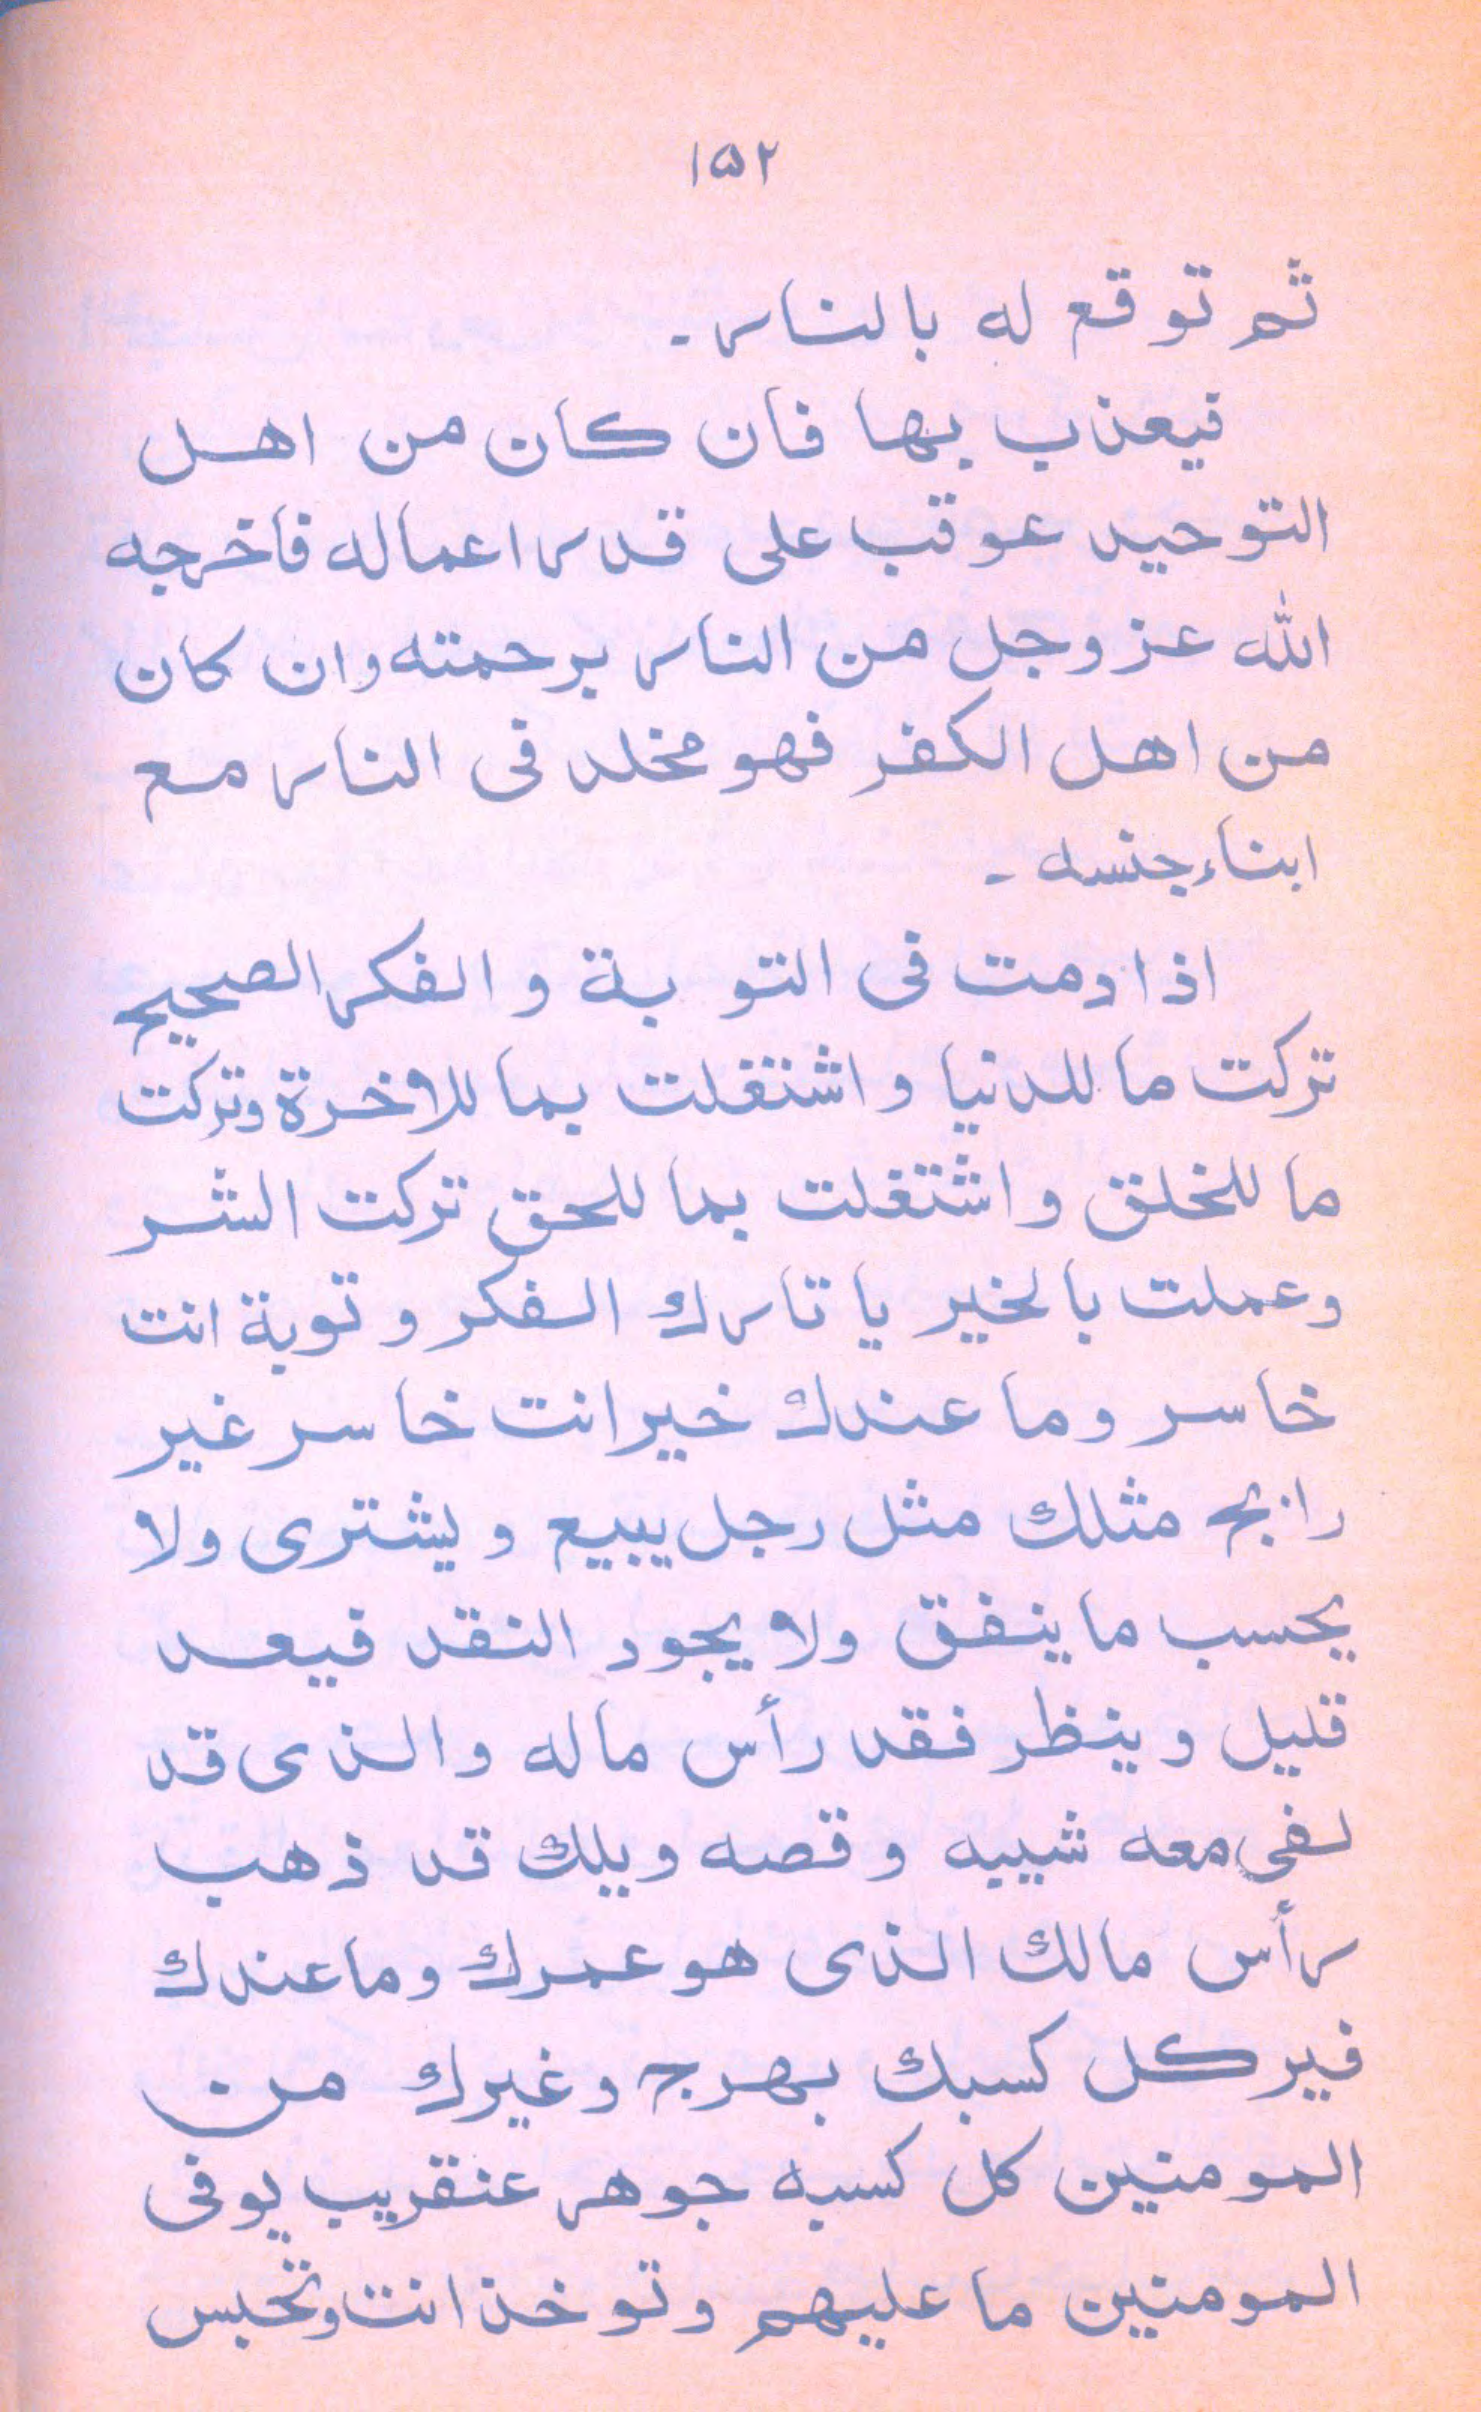 ١٥٢
ثم توقع له بالنار -
فيعذب بها فان كان من اهل
التوحيد عوقب على قدر اعماله فاخرجه
الله عز وجل من النار برحمته وان كان
من اهل الكفر فهو مخلد فى النار مع
ابناء جنسه -
اذا دمت فى التوبة و الفكر الصحيح
تركت ما للدنيا و اشتغلت بما للاخرة وتركت
ما للخلق و اشتغلت بما للحق تركت الشر
وعملت بالخير يا تارك الفكر و توبة انت
خاسر وما عندك خير انت خاسر غير
رابح مثلك مثل رجل يبيع و يشترى ولا
يحسب ما ينفق ولا يجود النقد فيعد
قليل وينظر فقد رأس ماله و الذى قد
معه شيبه و قصه ويلك قد ذهب
رأس مالك الذى هو عمرك وما عندك
فير كل كسبك بهرج وغيرك من
المومنين كل كسبه جوهر عنقريب يوفى
المومنين ما عليهم وتوخذ انت وتحبس